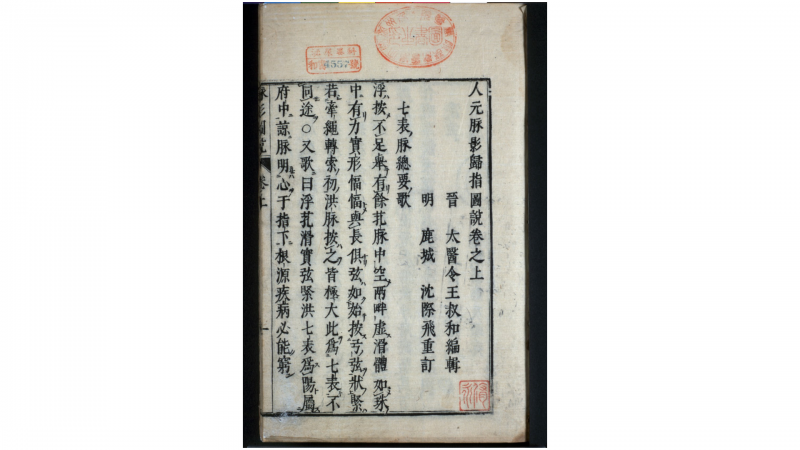 人元脉影歸指圖說卷之上
晉　太醫令王叔和編輯
明　鹿城　沈際飛重訂
七表脉總要歌
浮按不足舉有餘芤脉中空兩畔虛滑體如珠
中有力實形愊愊與長俱弦如始按弓弦狀緊
若牽繩轉索初洪脉按之皆極大此爲七表不
同途○又歌曰浮芤滑實弦緊洪七表爲陽屬
府中諒脉明心于指下根源疾病必能窮
脉影圖說　卷上　一
4557